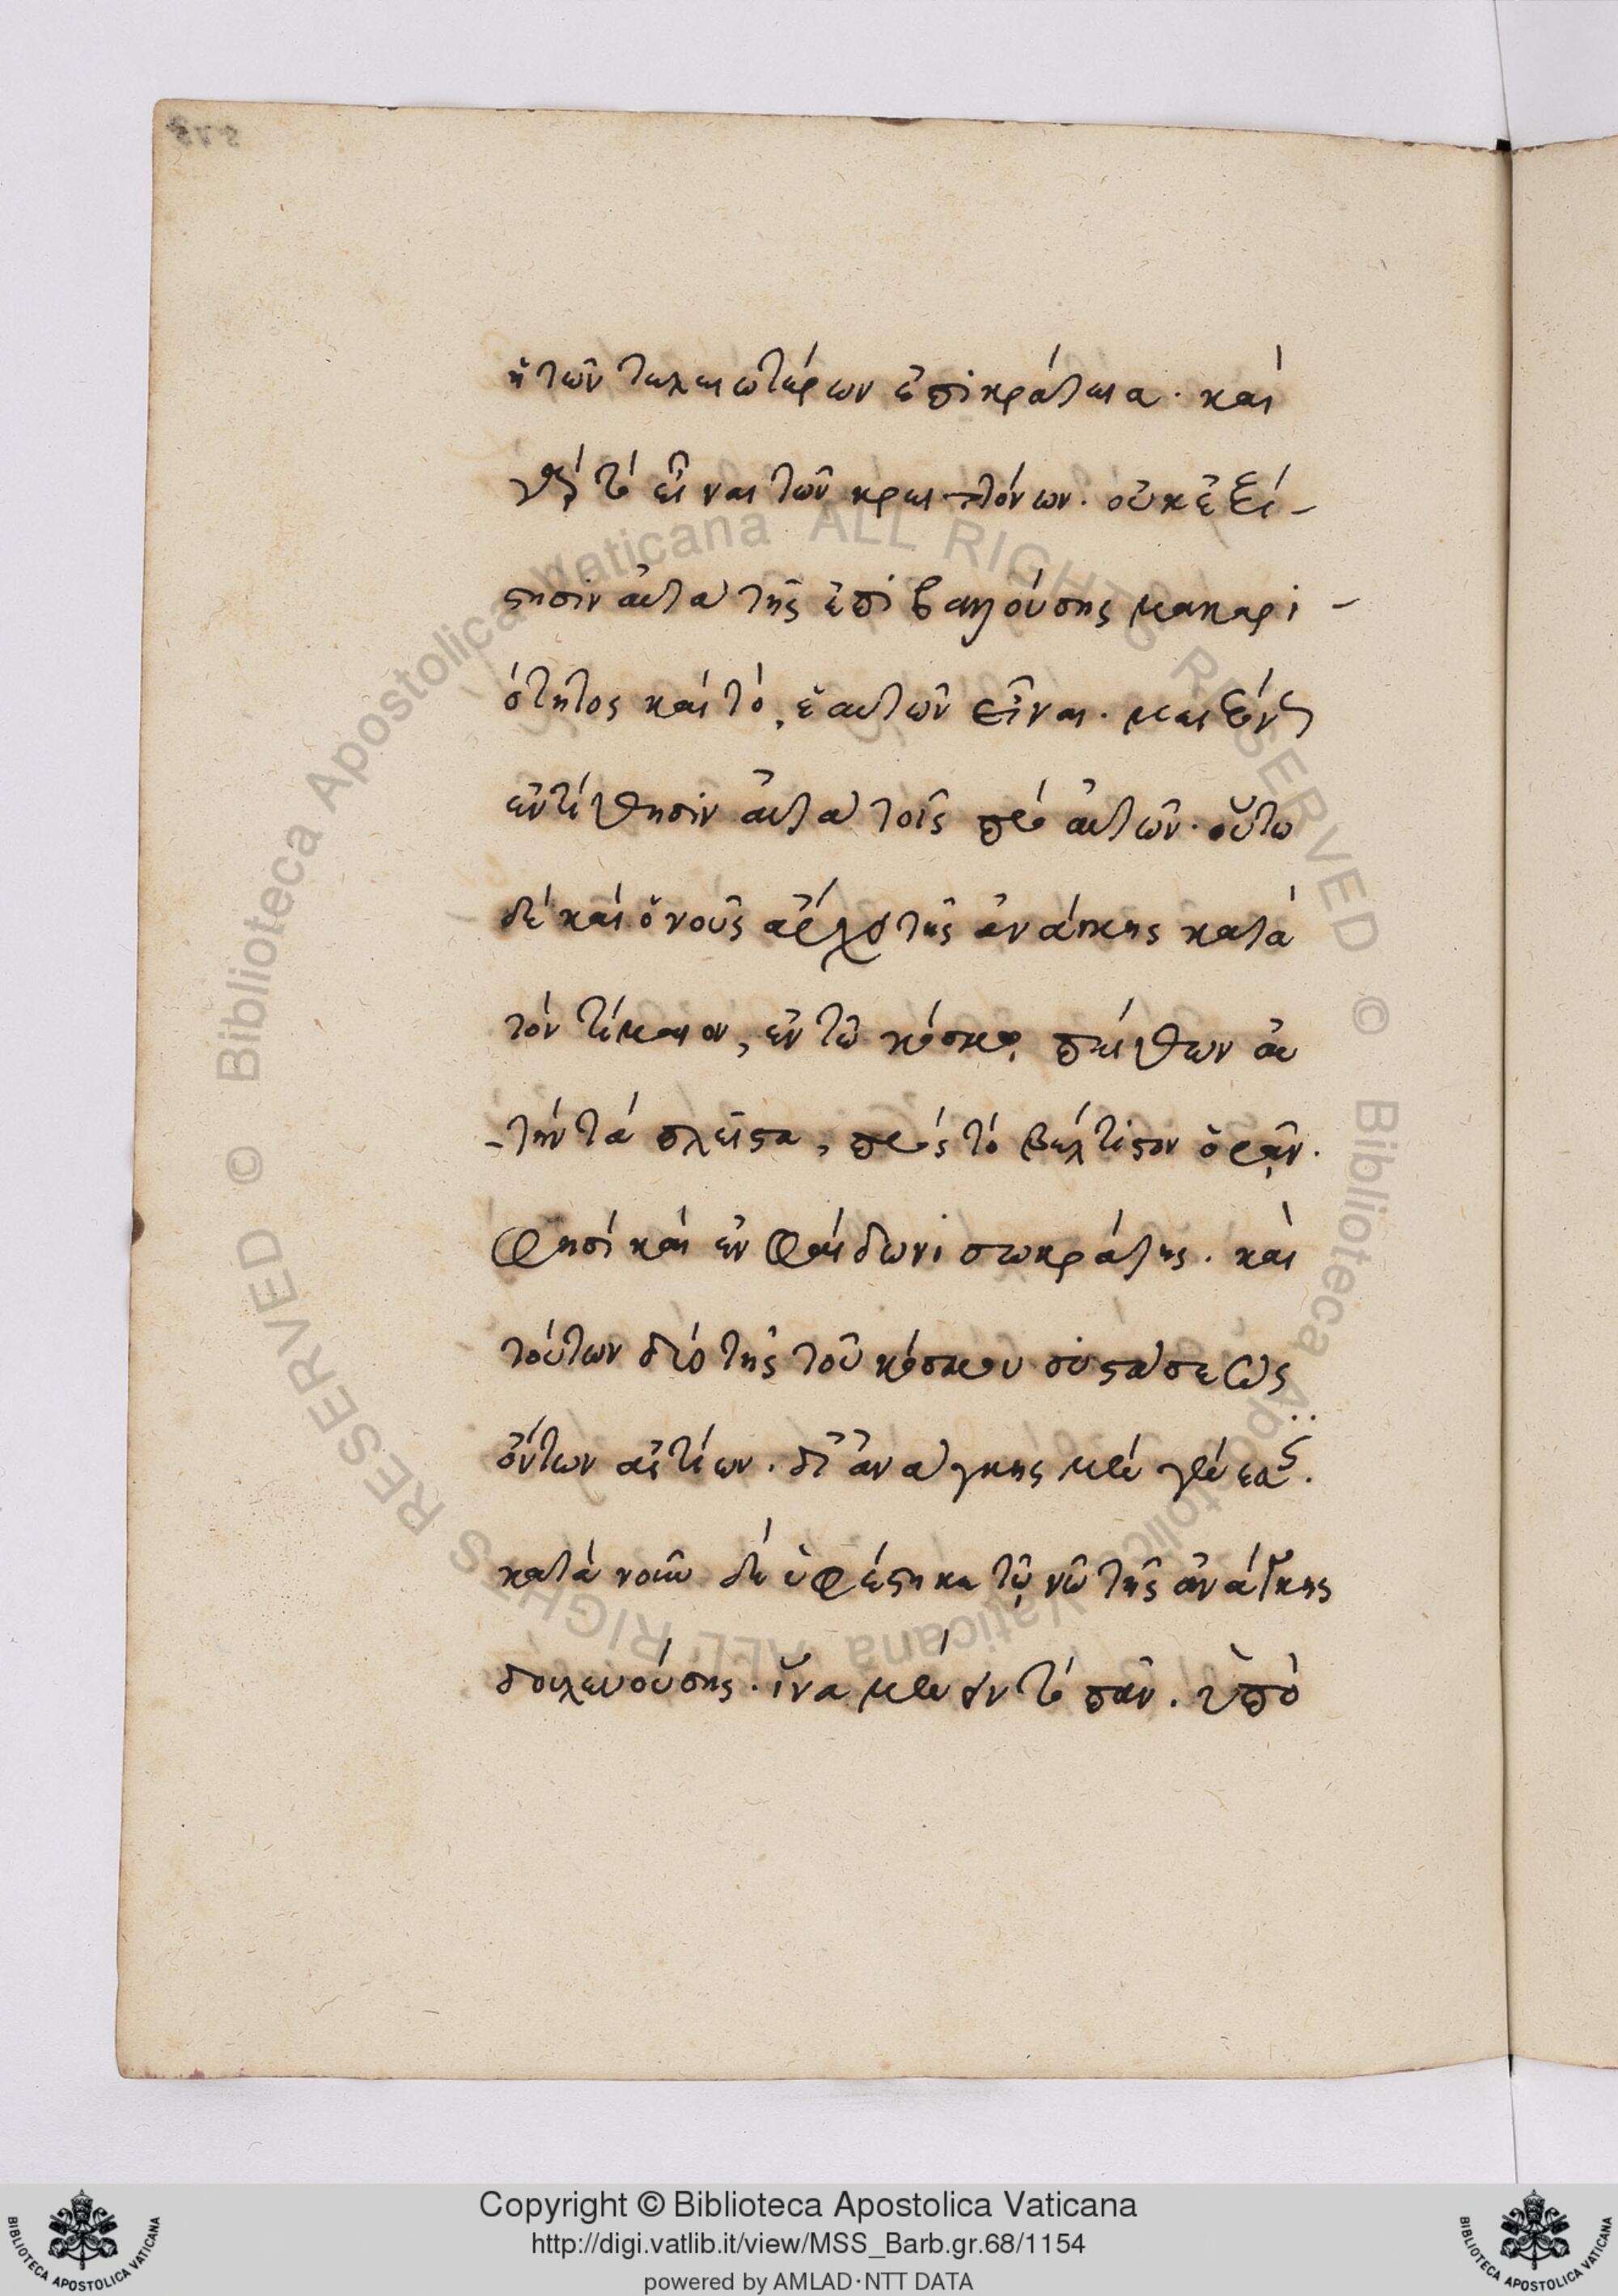 ἡ τῶν τελειοτέρων ἐπικράτεια. καὶ
τὸ εἶναι τῶν κρειττόνων. οὐκ ἐξί-
στησιν αὐτὰ τῆς ἐπιβαλλούσης μακαρι-
ότητος καὶ τὸ, ἑαυτῶν εἶναι. μειζόνως
ἐντίθησιν αὐτὰ τοῖς πρὸ αὐτῶν. οὕτω
δὲ καὶ ὁ νοῦς ἄρχει τῆς ἀνάγκης κατὰ
τὸν τίμαιον, ἐν τῷ κόσμῳ πείθων αὐ
-τὴν τὰ πλεῖστα, πρὸς τὸ βέλτιστον ὁρᾷν.
φησὶ καὶ ἐν φαίδωνι σωκράτης. καὶ
τούτων διὸ τῆς τοῦ κόσμου συστάσεως
ὄντων αἰτίων. δι᾽ ἀνάγκης μὲν
κατὰ νοῦν δὲ ὑφέστηκε τῷ νῷ τῆς ἀνάγκης
δουλευούσης. ἵνα μένει τὸ πᾶν. ὑπὸ
Copyright © Biblioteca Apostolica Vaticana
http://digi.vatlib.it/view/MSS_Barb.gr.68/1154
powered by AMLAD·NTT DATA
BIBLIOTECA APOSTOLICA VATICANA
BIBLIOTECA APOSTOLICA VATICANA
© Biblioteca Apostolica Vaticana ALL RIGHTS RESERVED © Biblioteca Apostolica Vaticana ALL RIGHTS RESERVED